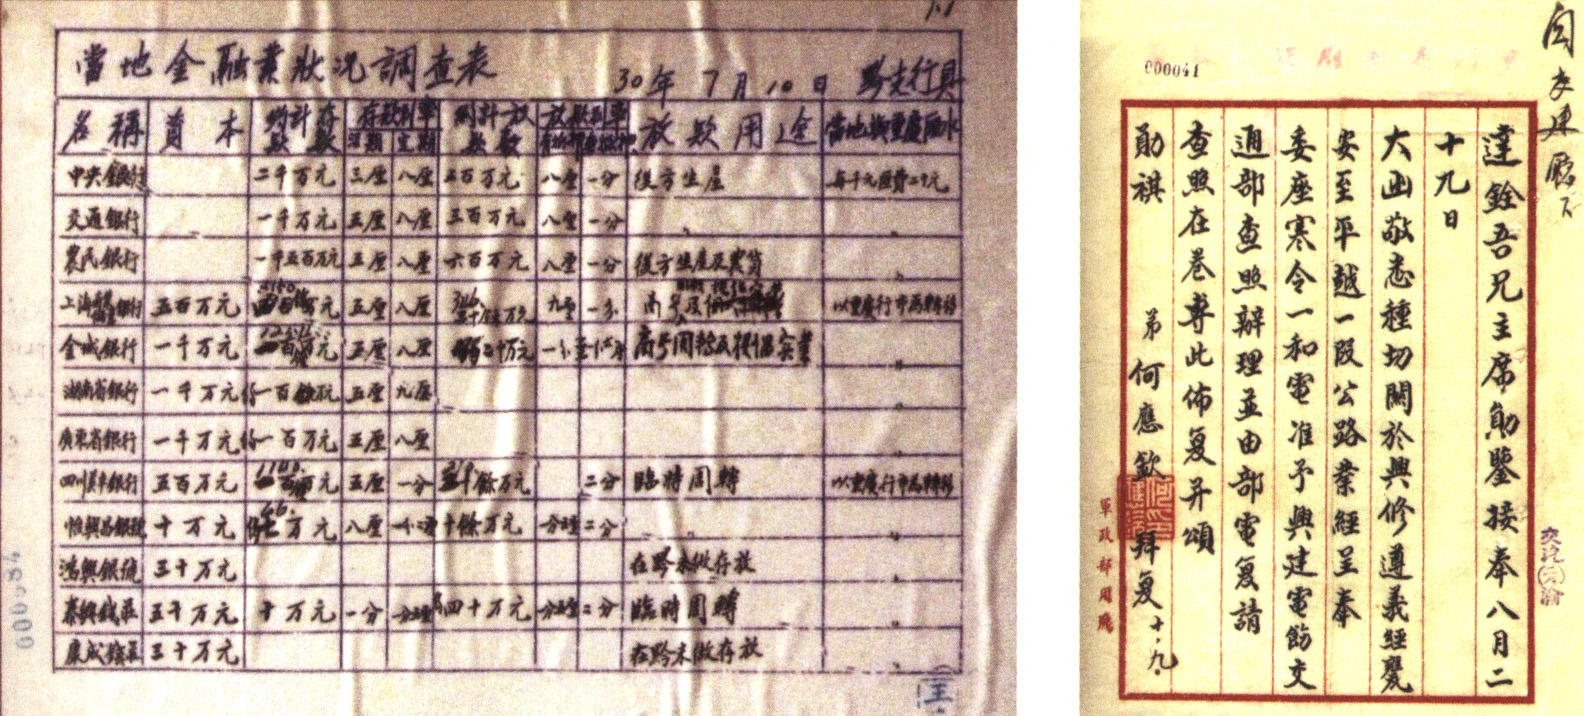 當地金融業狀況調查表
30年7月10日 黔支行具
名稱 資本 約計存款數 存款利率 活期 定期 約計放款數 放款利率 放款用途 當地與重慶匯水
中央銀行 二千万元 三厘 八厘 五百万元 八厘 一分 後方生產 每千元匯費二十元
交通銀行 一千万元 五厘 八厘 三百万元 八厘 一分 〃 〃
農民銀行 一千五百万元 五厘 八厘 六百万元 八厘 一分 後方生產及農貸 〃
上海 銀行 五百万元 五厘 八厘 九厘 一分 商号及 以重慶行市為轉移
金城銀行 一千万元 五厘 八厘 商号周轉及投信実業 〃
湖南省銀行 一千万元 約一百餘万元 五厘 九厘 〃
廣東省銀行 一千万元 約一百万元 五厘 八厘 〃
四川美丰銀行 五百万元 五厘 一分 餘万元 二分 臨時周轉 以重慶行市為轉移
怡興昌銀號 十万元 八厘 十餘万元 二分 〃 〃
鴻興銀號 三十万元 在黔未做存放 〃
泰興錢莊 五十万元 十万元 一分 四十万元 二分 臨時周轉 〃
康成錢莊 三十万元 在黔未做存放 〃
000584
000041
達銓吾兄主席勛鑒接奉八月二
十九日
大函敬悉種切關於興修遵義經甕
安至平越一段公路業經呈奉
委座寒令一和電准予興建電飭交
通部查照辦理並由部電复請
查照在卷專此佈复并頌
勛祺
弟何應欽拜复 十.九.
軍政部用牋